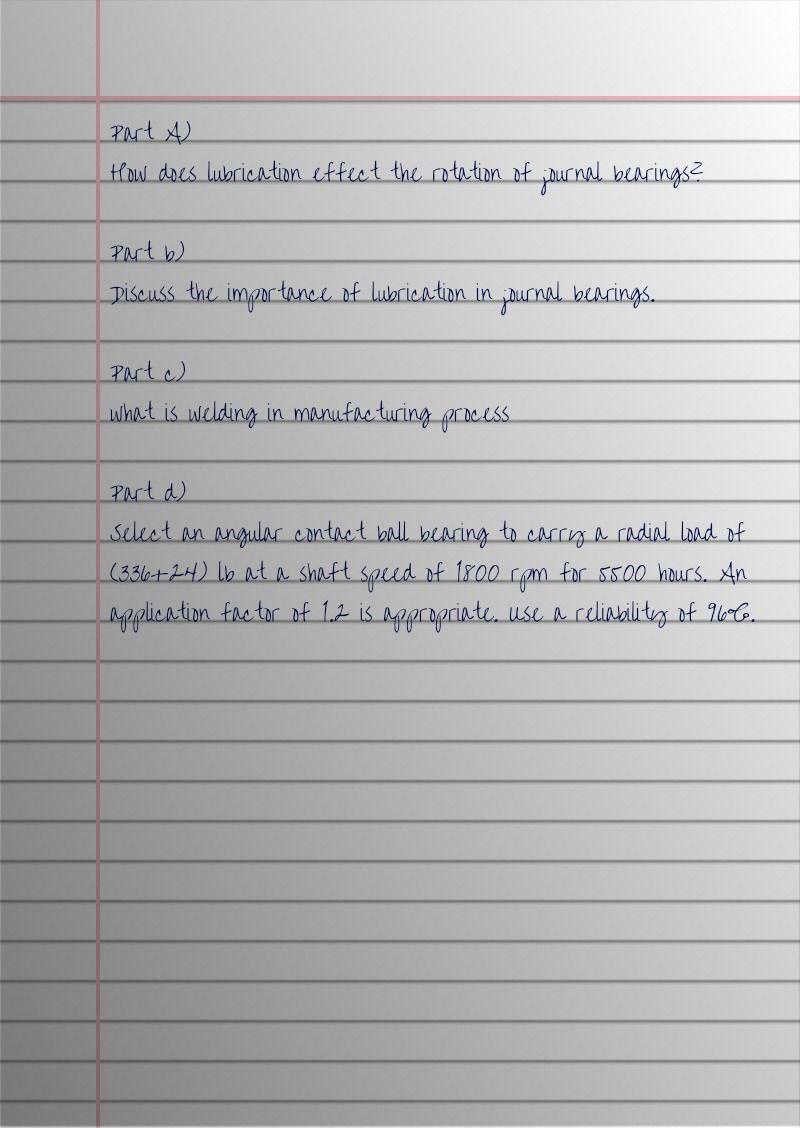 Part A)
How does lubrication effect the rotation of journal bearings?
Part b)
Discuss the importance of lubrication in journal bearings.
Part c)
what is welding in manufacturing process
Part d)
Select an angular contact ball bearing to carry a radial load of
(336+24) lb at a shaft speed of 1800 rpm for 5500 hours. An
application factor of 1.2 is appropriate. use a reliability of 96%.